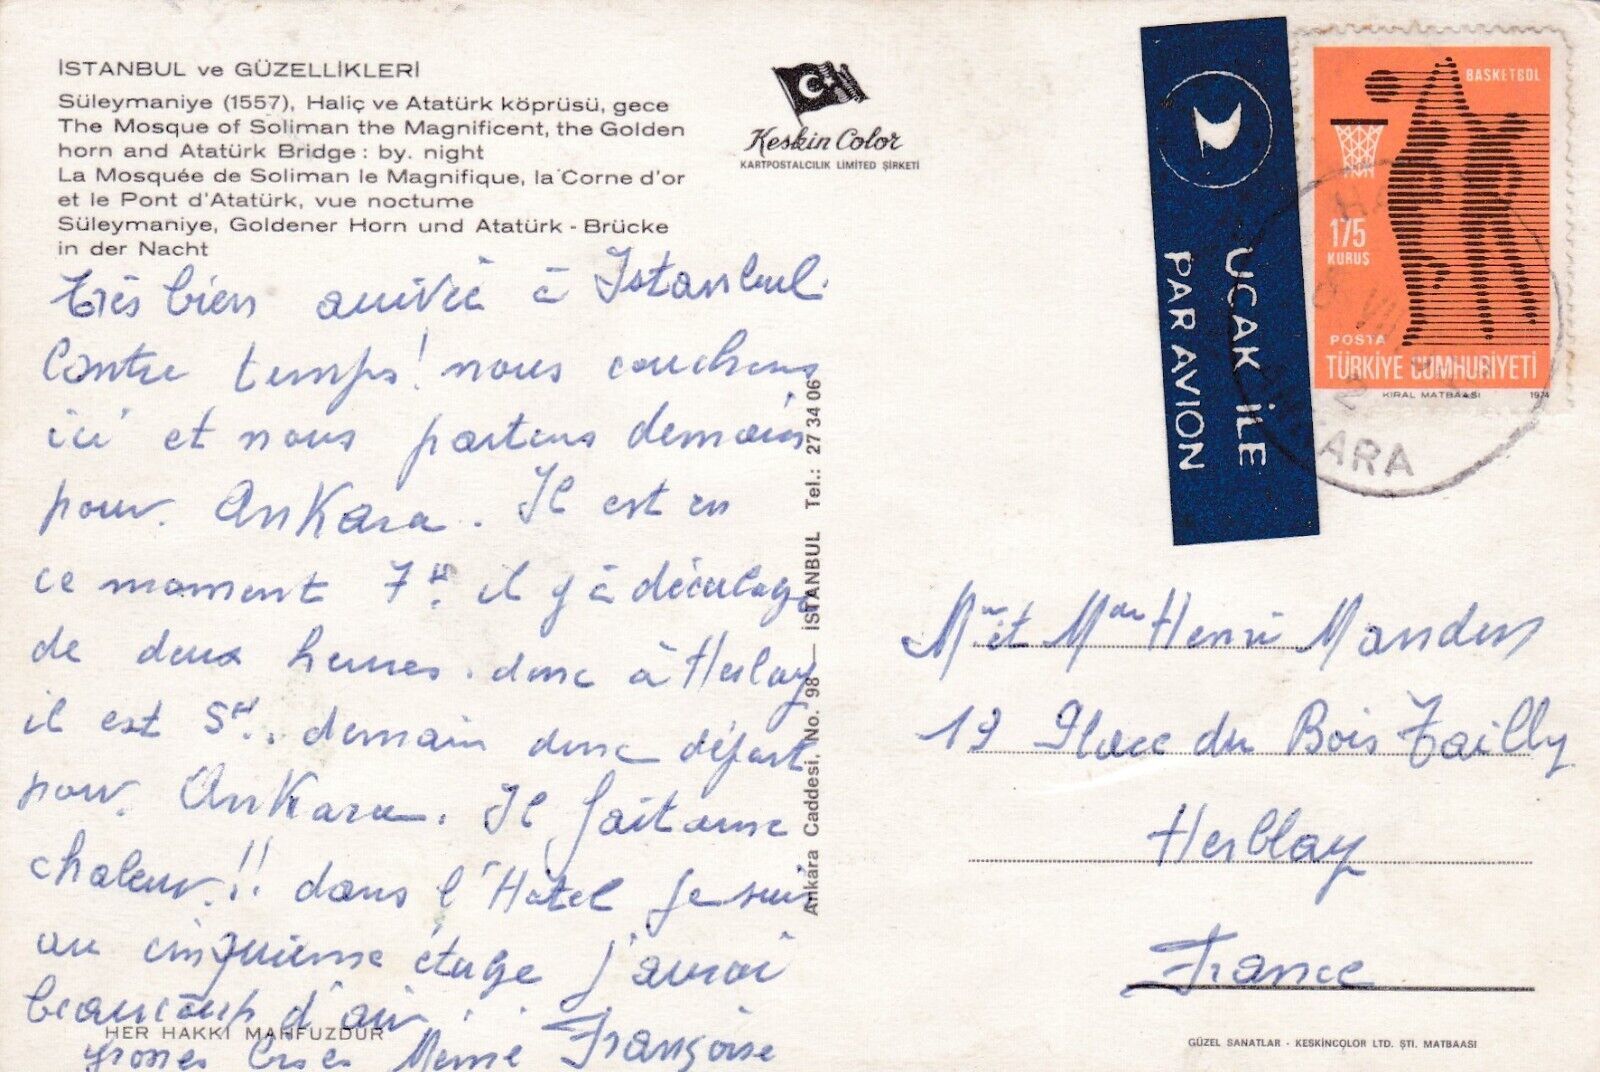 İSTANBUL ve GÜZELLİKLERİ
Süleymaniye (1557), Haliç ve Atatürk köprüsü, gece
The Mosque of Soliman the Magnificent, the Golden
horn and Atatürk Bridge : by. night
La Mosquée de Soliman le Magnifique, la Corne d'or
et le Pont d'Atatürk, vue noctume
Süleymaniye, Goldener Horn und Atatürk - Brücke
in der Nacht
Keskin Color
KARTPOSTALCILIK LIMITED ŞİRKETİ
UÇAK İLE
PAR AVION
BASKETBOL
175
KURUŞ
POSTA
TÜRKİYE CUMHURİYETİ
KIRAL MATBAASI 1974
ANKARA
très bien arrivée à Istanbul.
Contre temps! nous couchons
ici et nous partons demain
pour Ankara. Il est en
ce moment 7H. il y à décalage
de deux heures. donc à Herlay
il est 5H. demain donc départ
pour Ankara. Il fait une
chaleur!! dans l'Hôtel je suis
au cinquième étage j'aurai
beaucoup d'air
grosses bises Françoise
Ankara Caddesi, No. 98 — İSTANBUL Tel.: 27 34 06
HER HAKKI MAHFUZDUR
Mr et Mme Henri Manders
19 Place du Bois Tailly
Herblay
France
GÜZEL SANATLAR - KESKİNCOLOR LTD. ŞTİ. MATBAASI